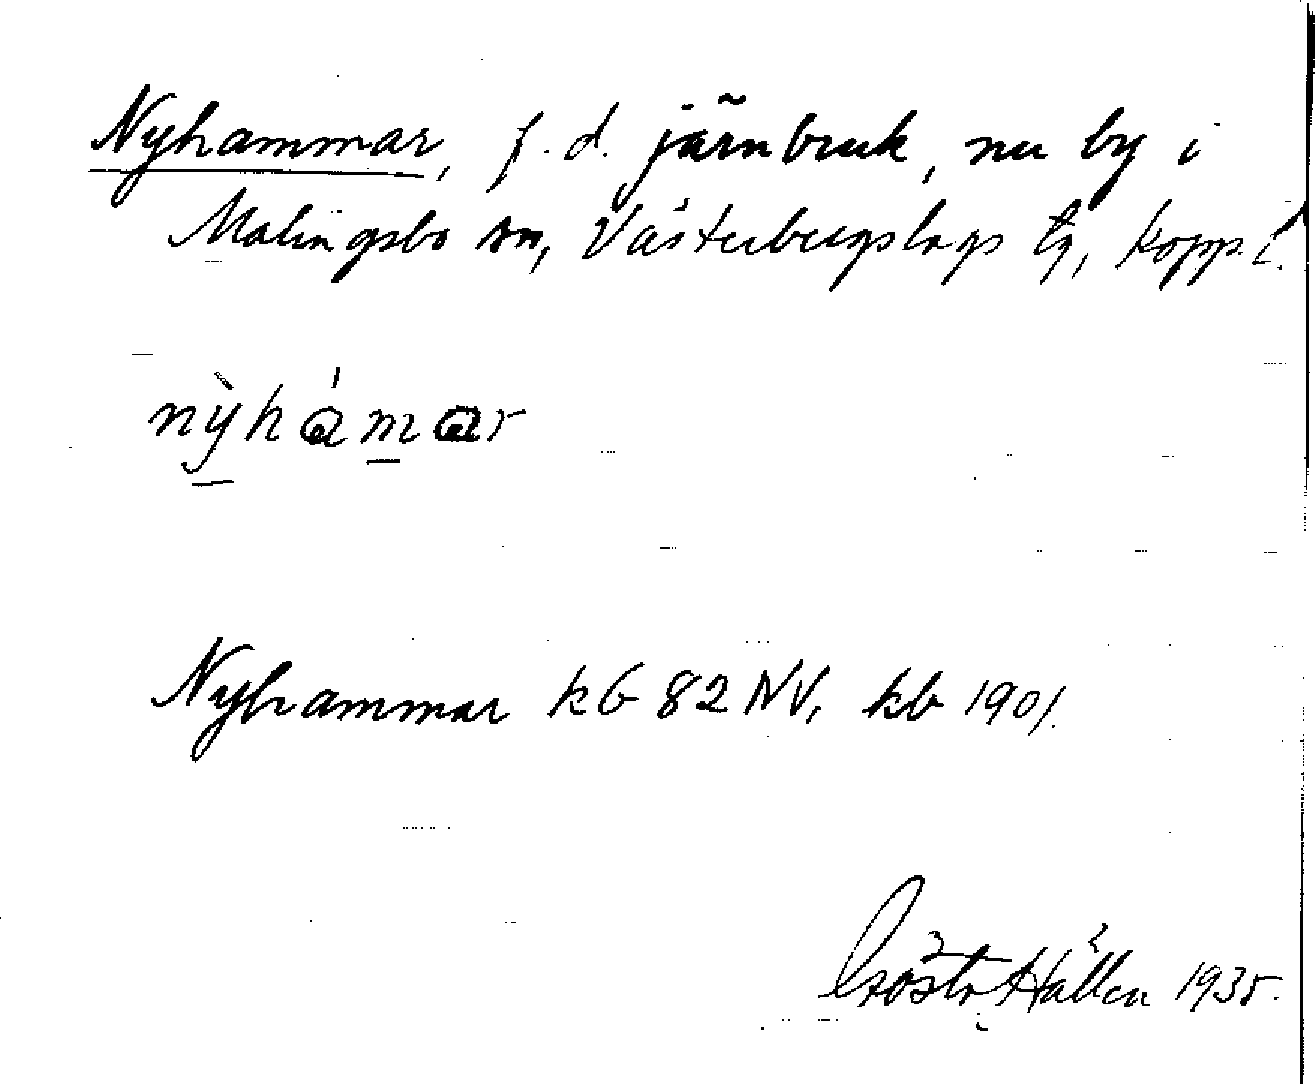 Nyhammar, f. d. järnbruk, nu by i
Malingsbo sn, Västerbergslags tg, Kopp. l.
nỳhámar
Nyhammar kb 82 NV, kb 1901.
Gösta Hallén 1935.